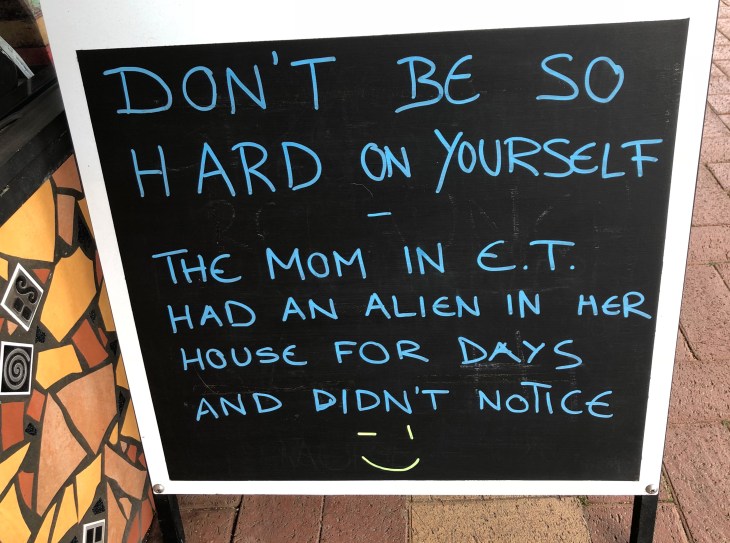 DON'T BE SO
HARD ON YOURSELF
-
THE MOM IN E.T.
HAD AN ALIEN IN HER
HOUSE FOR DAYS
AND DIDN'T NOTICE